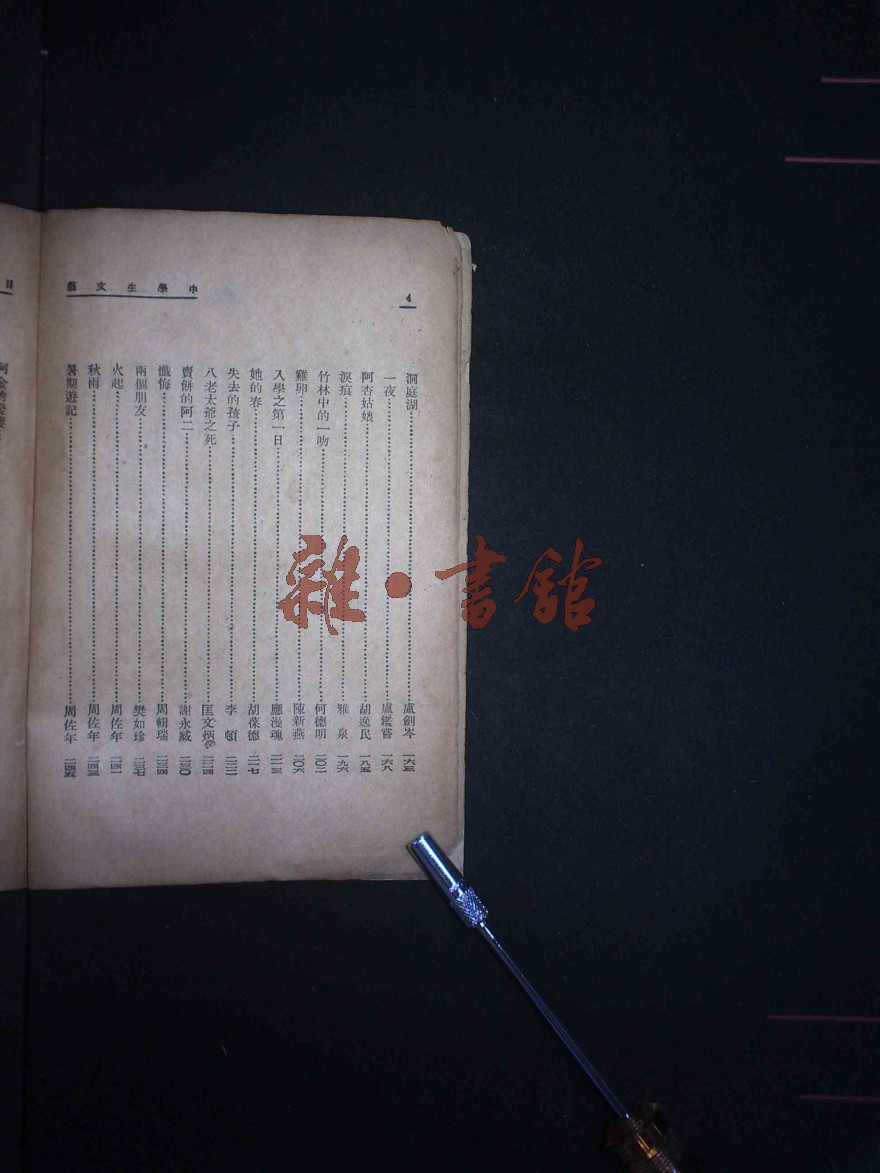 中學生文藝
4
洞庭湖……盧劍岑 一六三
一夜……盧鑑嘗 一六八
阿杏姑娘……胡逸民 一八五
淚痕……雅泉 一九六
竹林中的一吻……何德明 二〇二
雞卵……陳新燕 二〇六
入學之第一日……應漫魂 二一三
她的春……胡葆德 二一七
失去的孩子……李頓
八老太爺之死……匡文炳
賣餅的阿二……謝永感 二三〇
懺悔……周輯瑞 二三四
兩個朋友……樊如珍 二三七
火起……周佐年 二四一
秋雨……周佐年 二四三
暑期遊記……周佐年 二四五
雜·書館